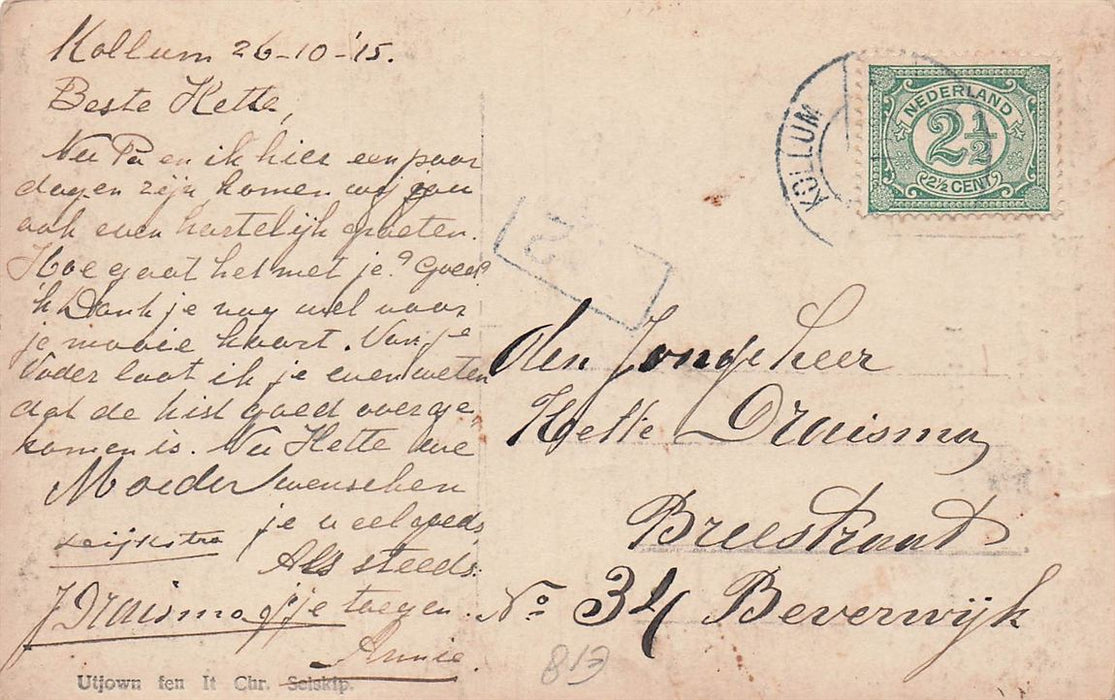 Kollum 26-10-'15.
Beste Hette,
Nu Pa en ik hier een paar
dagen zijn komen wij jou
ook even hartelijk groeten.
Hoe gaat het met je? Goed?
'k Dank je nog wel voor
je mooie kaart. Van je
Vader laat ik je even weten
dat de kist goed overge-
komen is. Nu Hette we
Moeder wenschen
je veel goeds,
Als steeds
J Draisma je toegen.
Annie.
Utjown fen It Chr. Selskip.
KOLLUM
NEDERLAND
2½
2½ CENT
den Jonge heer
Hette Draisma,
Breestraat
No 34 Beverwijk
813